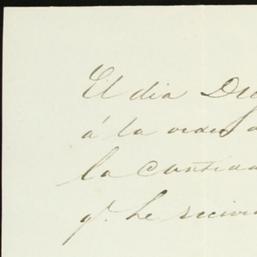 El dia Du
á la orden d
la Cantida
qe. he recivi